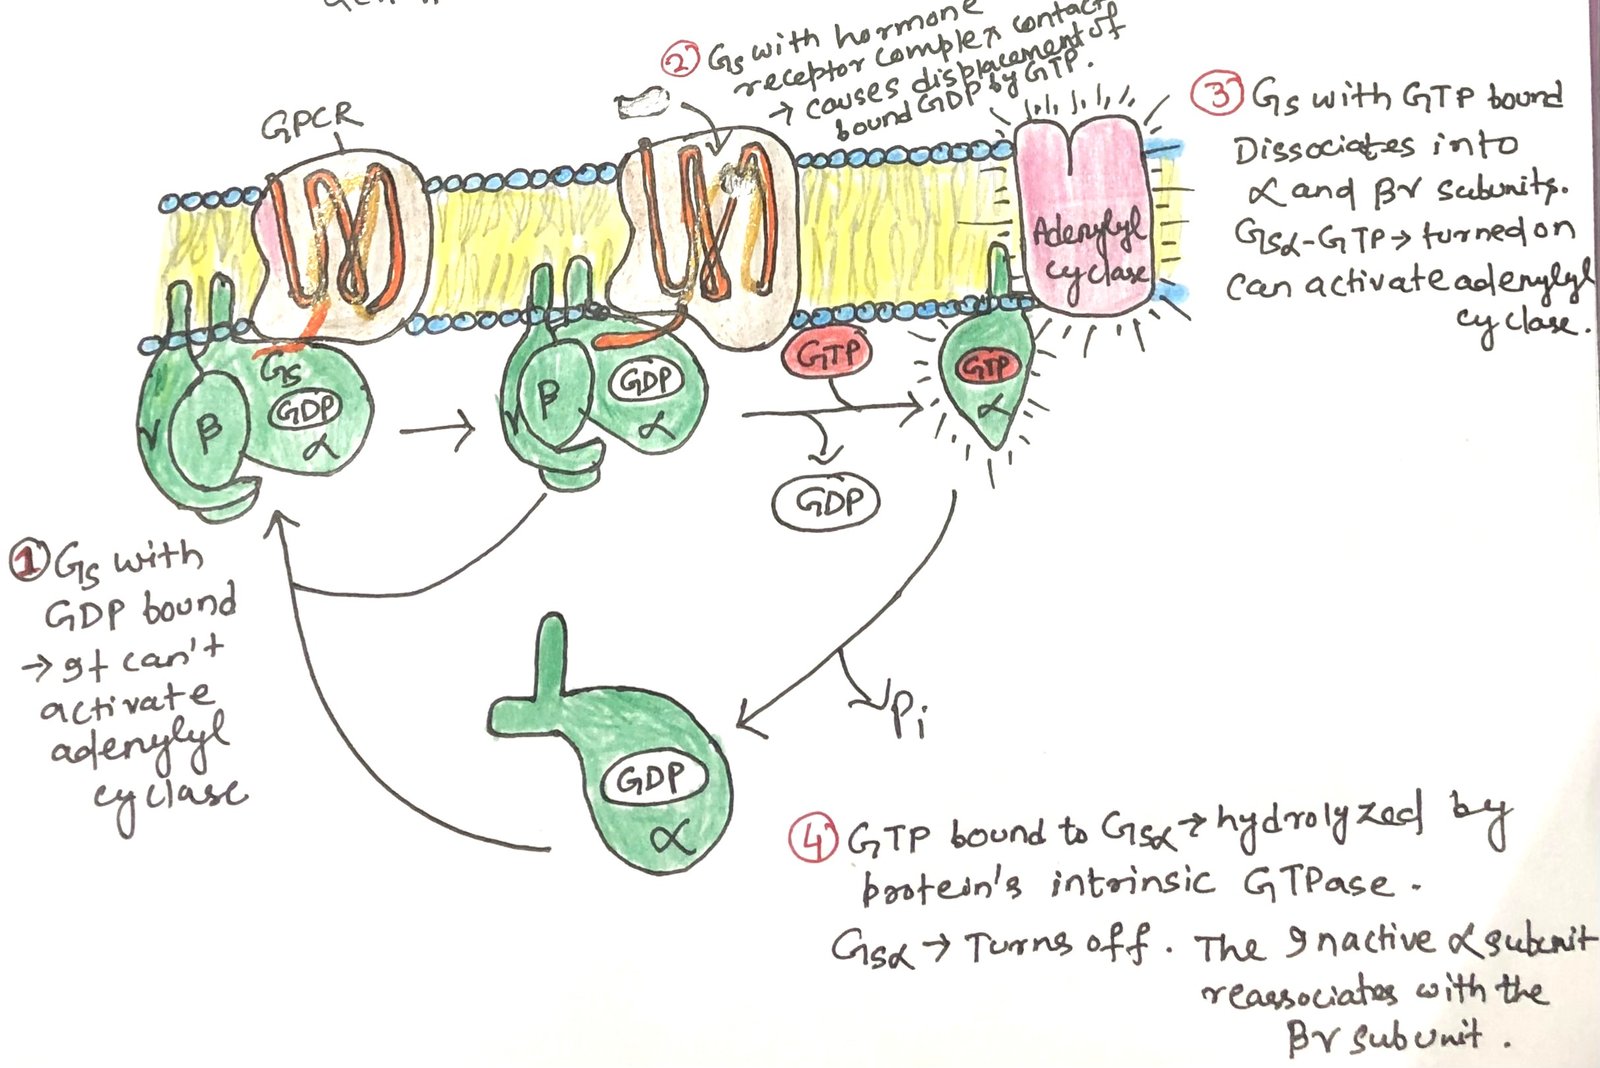 GPCR
② Gs with hormone
receptor complex contact
→ causes displacement of
bound GDP by GTP.
③ Gs with GTP bound
Dissociates into
α and βγ subunits.
Gsα-GTP → turned on
can activate adenylyl
cyclase.
Adenylyl
cyclase
Gs
GDP
β
α
γ
GDP
β
α
γ
GTP
GDP
GTP
α
① Gs with
GDP bound
→ It can't
activate
adenylyl
cyclase
Pi
GDP
α
④ GTP bound to Gsα → hydrolyzed by
protein's intrinsic GTPase.
Gsα → Turns off. The Inactive α subunit
reassociates with the
βγ subunit.